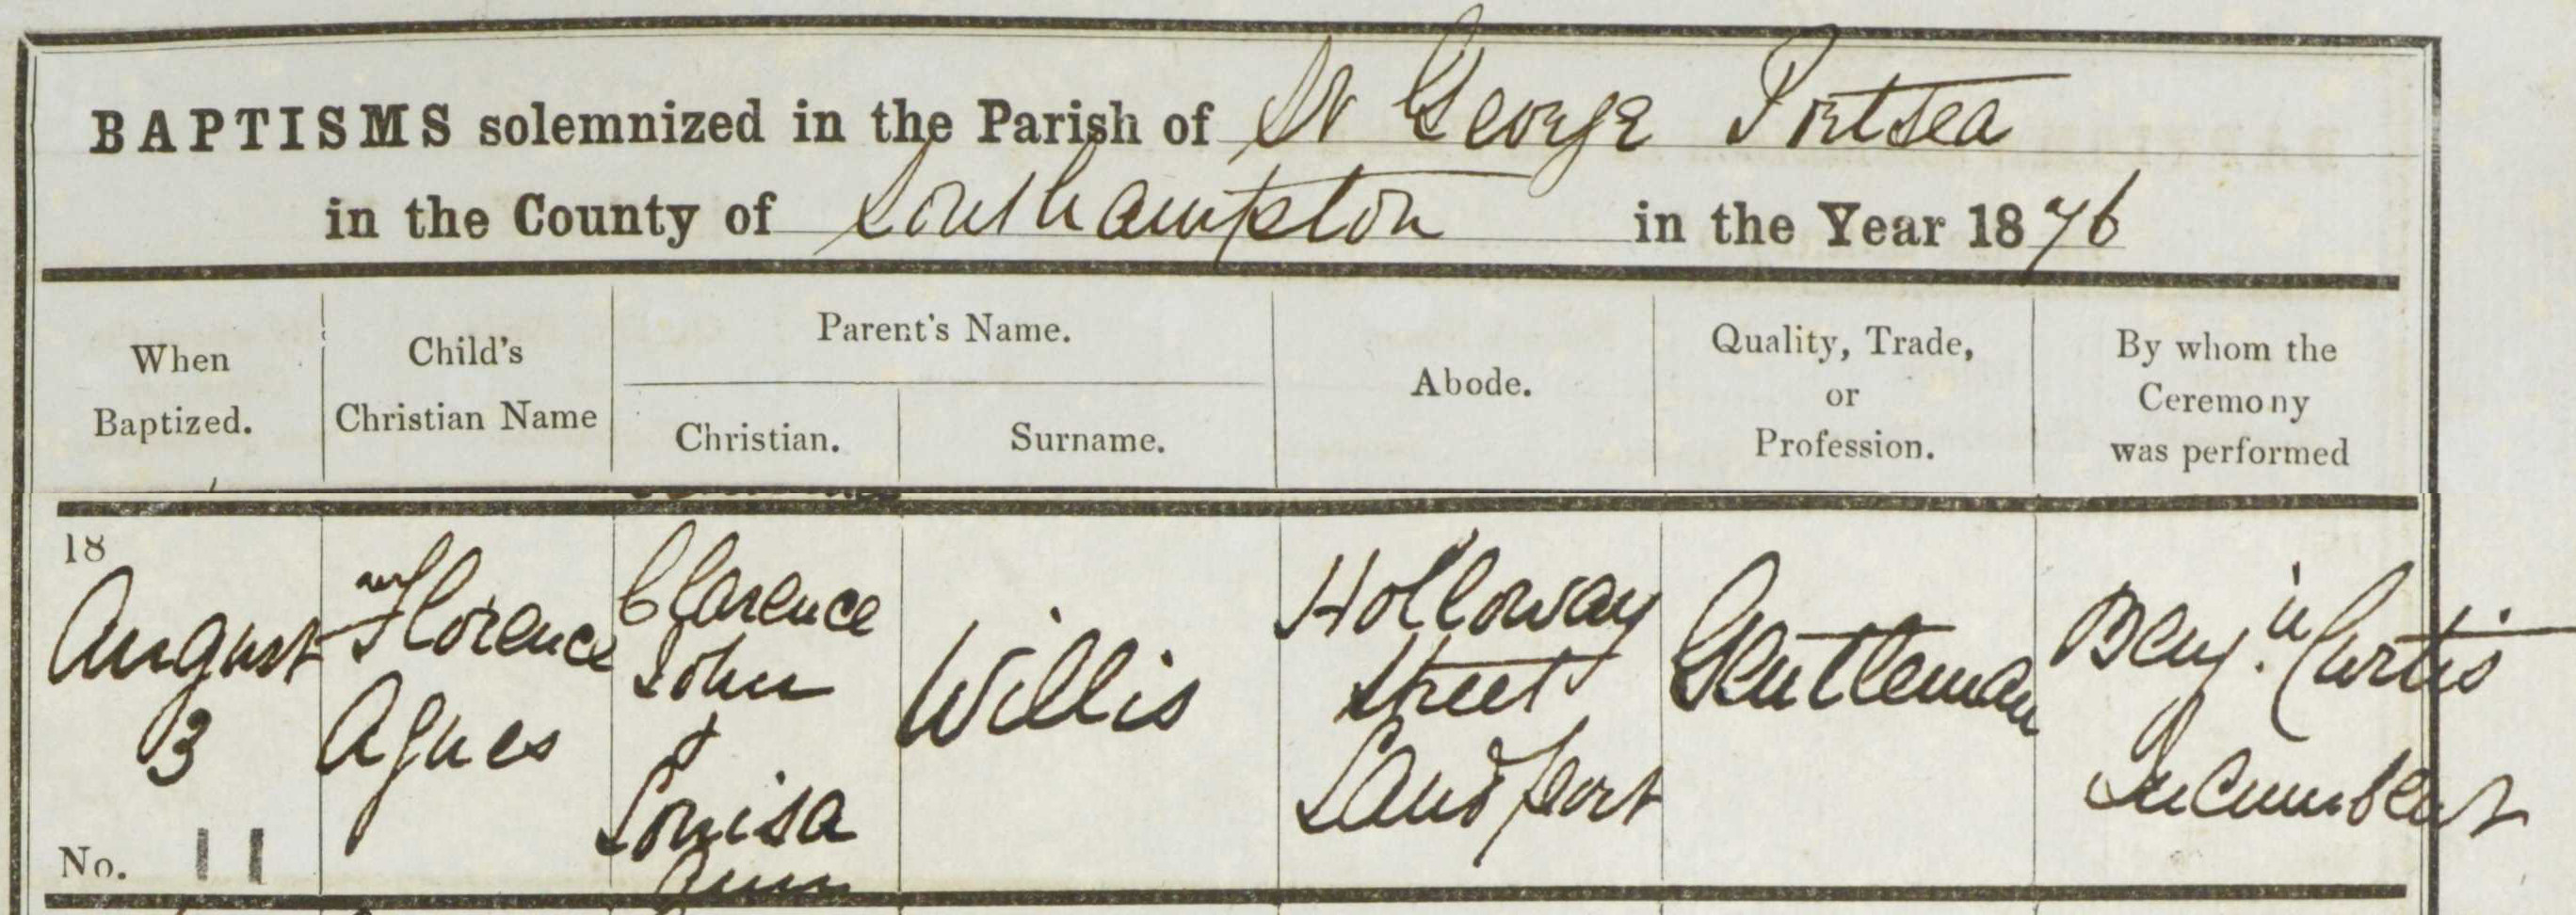 BAPTISMS solemnized in the Parish of St George Portsea
in the County of Southampton in the Year 1876
When
Baptized.
Child's
Christian Name
Parent's Name.
Christian.
Surname.
Abode.
Quality, Trade,
or
Profession.
By whom the
Ceremony
was performed
18
August
3
No. 11
Florence
Agnes
Clarence
John
+
Louisa
Ann
Willis
Holloway
Street
Landport
Gentleman
Benj.n Curtis
Incumbent